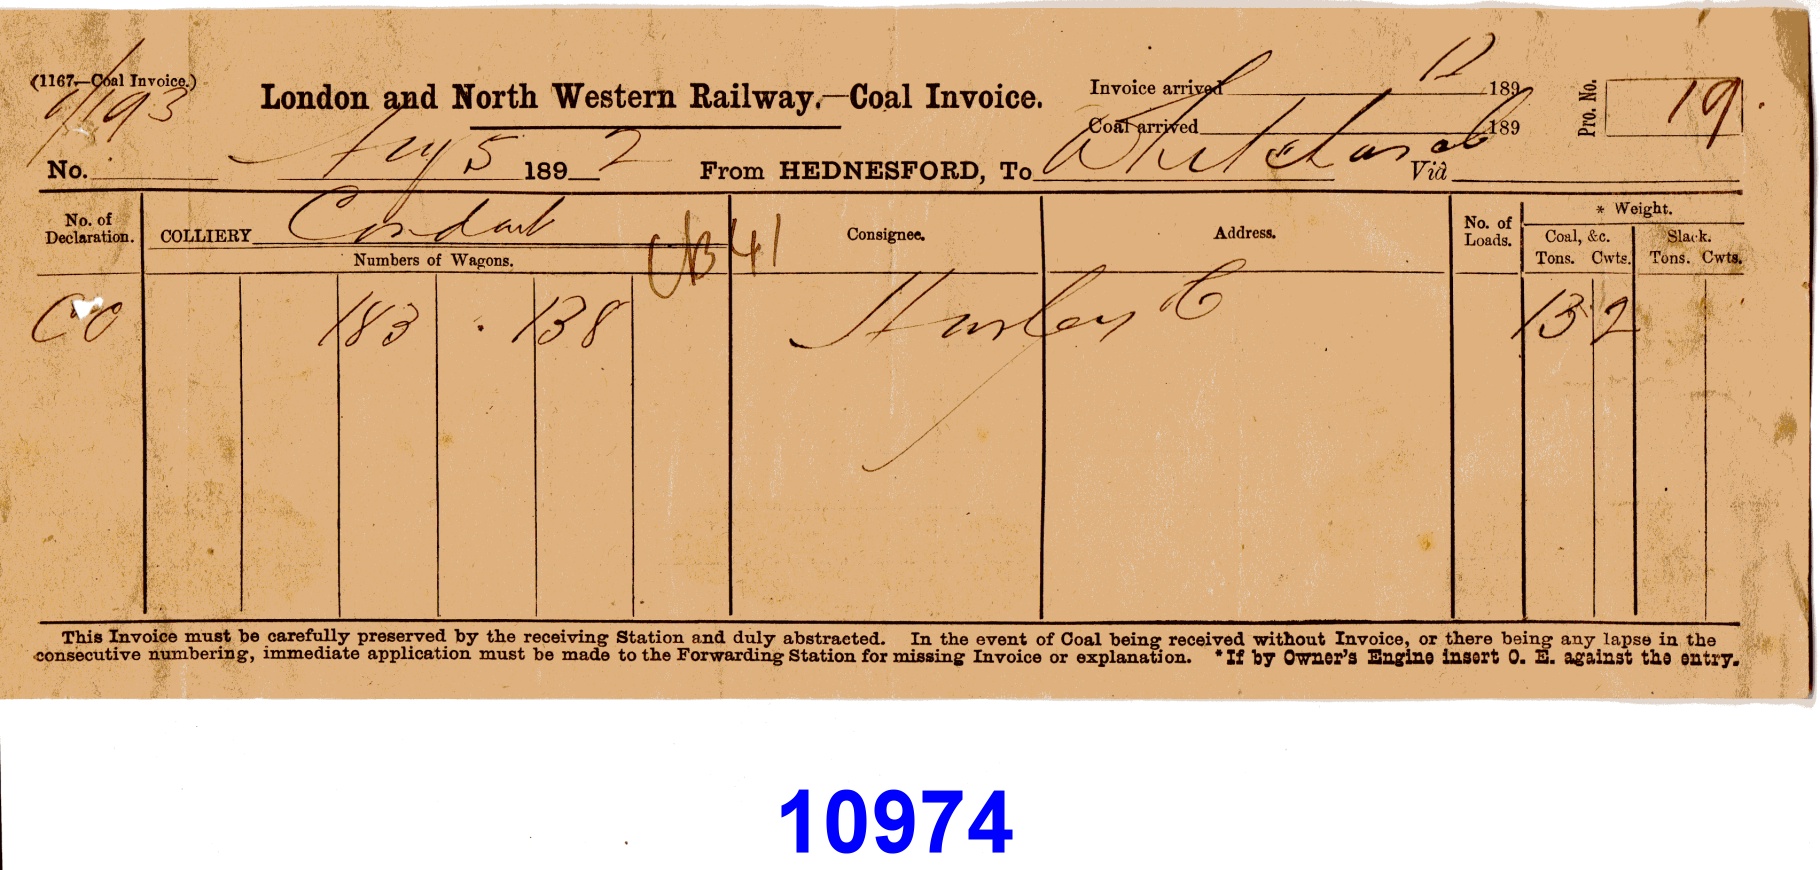 (1167—Coal Invoice.)
London and North Western Railway.—Coal Invoice.
Invoice arrived 12 189
Coal arrived 189
Pro. No. 19.
No. Aug 5 1892 From HEDNESFORD, To Whitchurch Viâ
No. of Declaration.
COLLIERY
Numbers of Wagons.
Consignee.
Address.
No. of Loads.
* Weight.
Coal, &c.
Slack.
Tons. Cwts.
Tons. Cwts.
183 138 13 2
This Invoice must be carefully preserved by the receiving Station and duly abstracted. In the event of Coal being received without Invoice, or there being any lapse in the
consecutive numbering, immediate application must be made to the Forwarding Station for missing Invoice or explanation. *If by Owner's Engine insert O. E. against the entry.
10974